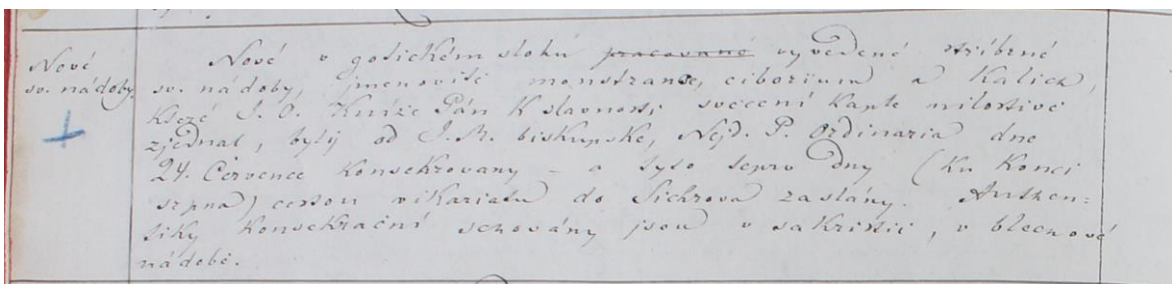 Nové
sv. nádoby.
Nové v gotickém slohu pracované vyvedené stříbrné
sv. nádoby, jmenovitě monstranse, ciborium a Kalich,
které J. O. Kníže Pán K slavnosti svěcení Kaple milostivě
zjednal, byly od J. M. biskupské, Nejd. P. Ordinaria dne
24. Července Konsekrovany – a tyto teprv dny (ku Konci
srpna) cestou vikariatu do Sichrova zaslány. Authen=
tiky Konsekrační schovány jsou v sakristii, v blechové
nádobě.